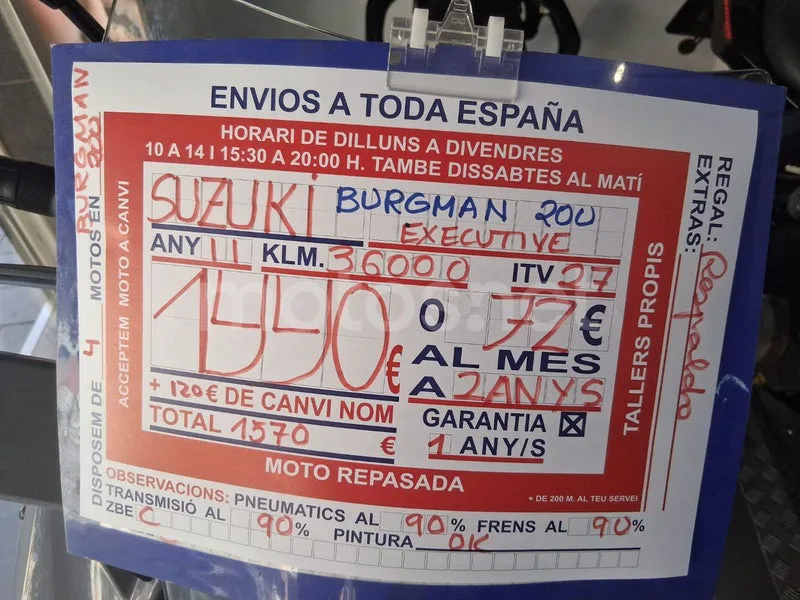 ENVIOS A TODA ESPAÑA
HORARI DE DILLUNS A DIVENDRES
10 A 14 I 15:30 A 20:00 H. TAMBE DISSABTES AL MATÍ
SUZUKI BURGMAN 200
EXECUTIVE
ANY 11 KLM. 36000 ITV 27
1450€ O 72€
AL MES
A 2ANYS
+ 120€ DE CANVI NOM
TOTAL 1570 €
GARANTIA ☒
1 ANY/S
MOTO REPASADA
+ DE 200 M. AL TEU SERVEI
OBSERVACIONS: PNEUMATICS AL 90% FRENS AL 90%
TRANSMISIÓ AL 90% PINTURA OK
ZBE C
DISPOSEM DE 4 MOTOS EN BURGMAN 200
ACCEPTEM MOTO A CANVI
TALLERS PROPIS
REGAL: Respaldo
EXTRAS:
motos.net